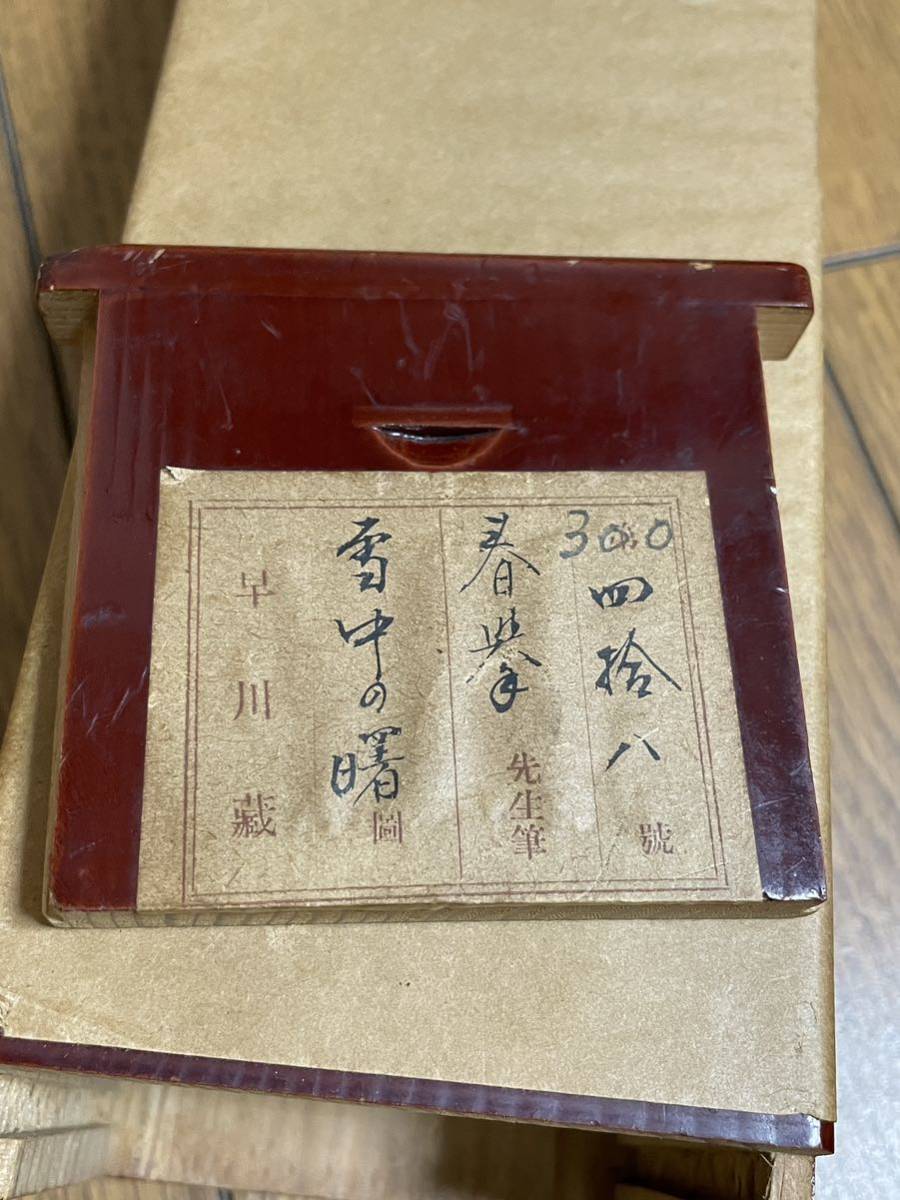 300
四拾八號
春擧先生筆
雪中の曙圖
早川藏